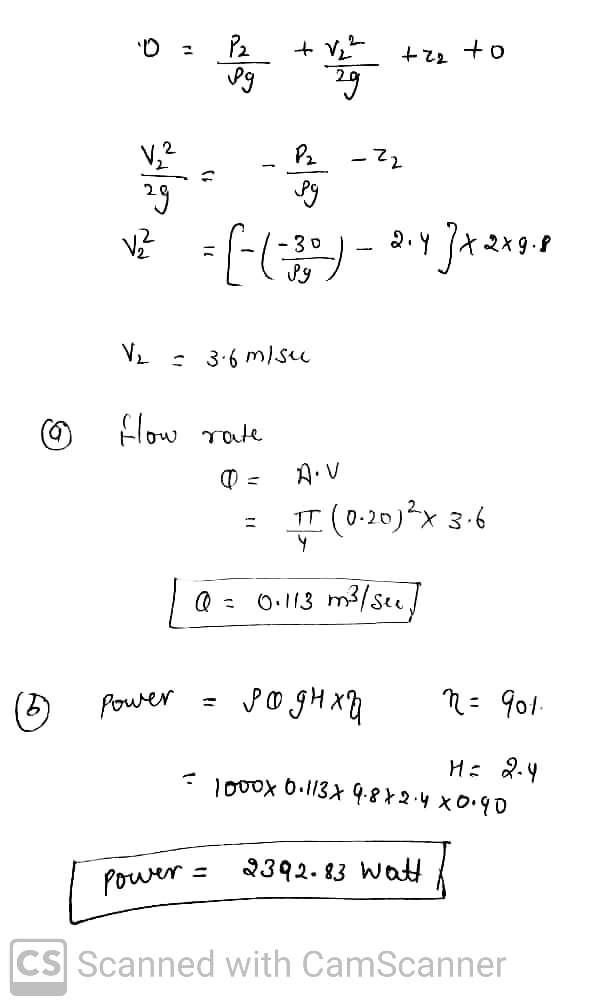 0 = P₂/ρg + V₂²/2g + z₂ + 0
V₂²/2g = - P₂/ρg - z₂
V₂² = [-(-30/ρg) - 2.4] × 2×9.8
V₂ = 3.6 m/sec
(a) flow rate
Q = A.V
= π/4 (0.20)² × 3.6
Q = 0.113 m³/sec
(b) Power = ρQgH × η η = 90%
H = 2.4
= 1000 × 0.113 × 9.8 × 2.4 × 0.90
Power = 2392.83 watt
CS Scanned with CamScanner